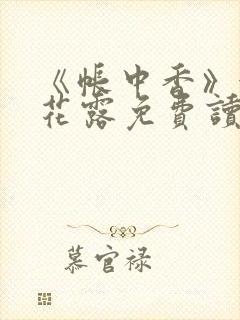 《帐中香》
花露免费讀
慕官禄